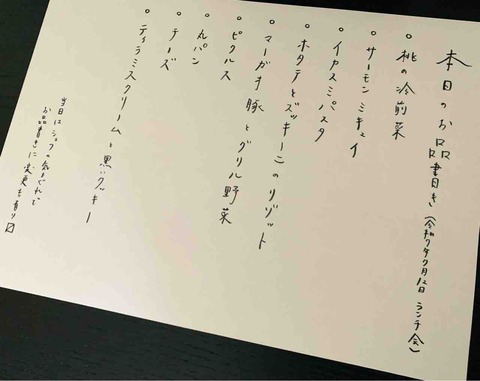 本日のお品書き(令和7年7月12日 ランチ会)
桃の冷前菜
サーモンミキュイ
イカスミパスタ
ホタテとズッキーニのリゾット
マーガオ豚とグリル野菜
ピクルス
丸パン
チーズ
ティラミスクリームと黒いクッキー
当日はシェフの気まぐれで
お品書きに変更も有り〼